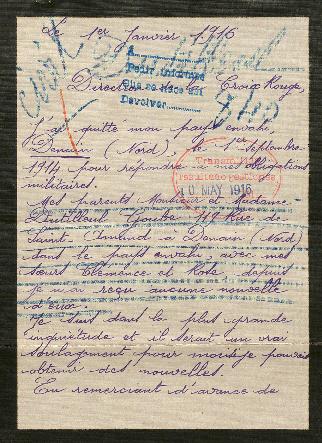 Le 1er Janvier 1916
A
Pedir informe
Que se nice en
Devolver
Directeur Croix Rouge,
J'ai quitté mon pays envahi,
Denain (Nord), le 1er Septembre
1914 pour répondre à mes obligations
militaires.
Transmitido
resultado pesquisas
10 MAY 1916
Mes parents Monsieur et Madame
119 Rue de
Saint-Amand à Denain (Nord)
dans le pays envahi avec mes
sœurs Clémence et Rose depuis
je n'ai reçu aucune nouvelle
d'eux
Je suis dans la plus grande
inquiétude et il serait un vrai
soulagement pour moi si je pouvais
obtenir des nouvelles.
En remerciant d'avance de